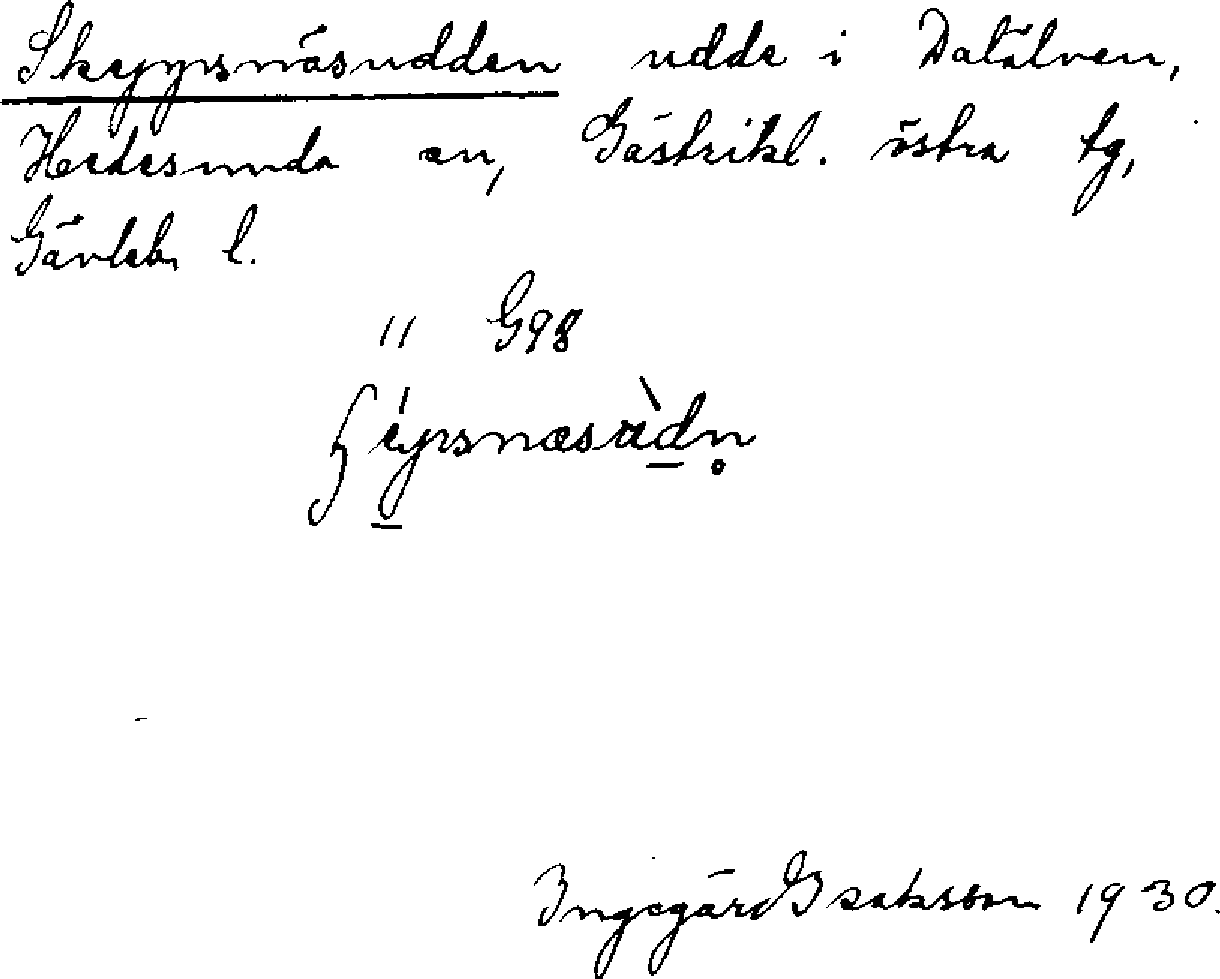 Skeppsnäsudden udde i Dalälven,
Hedesunda sn, Gästrikl. östra tg,
Gävleb. l.
" G98
Ingegärd Isaksson 1930.